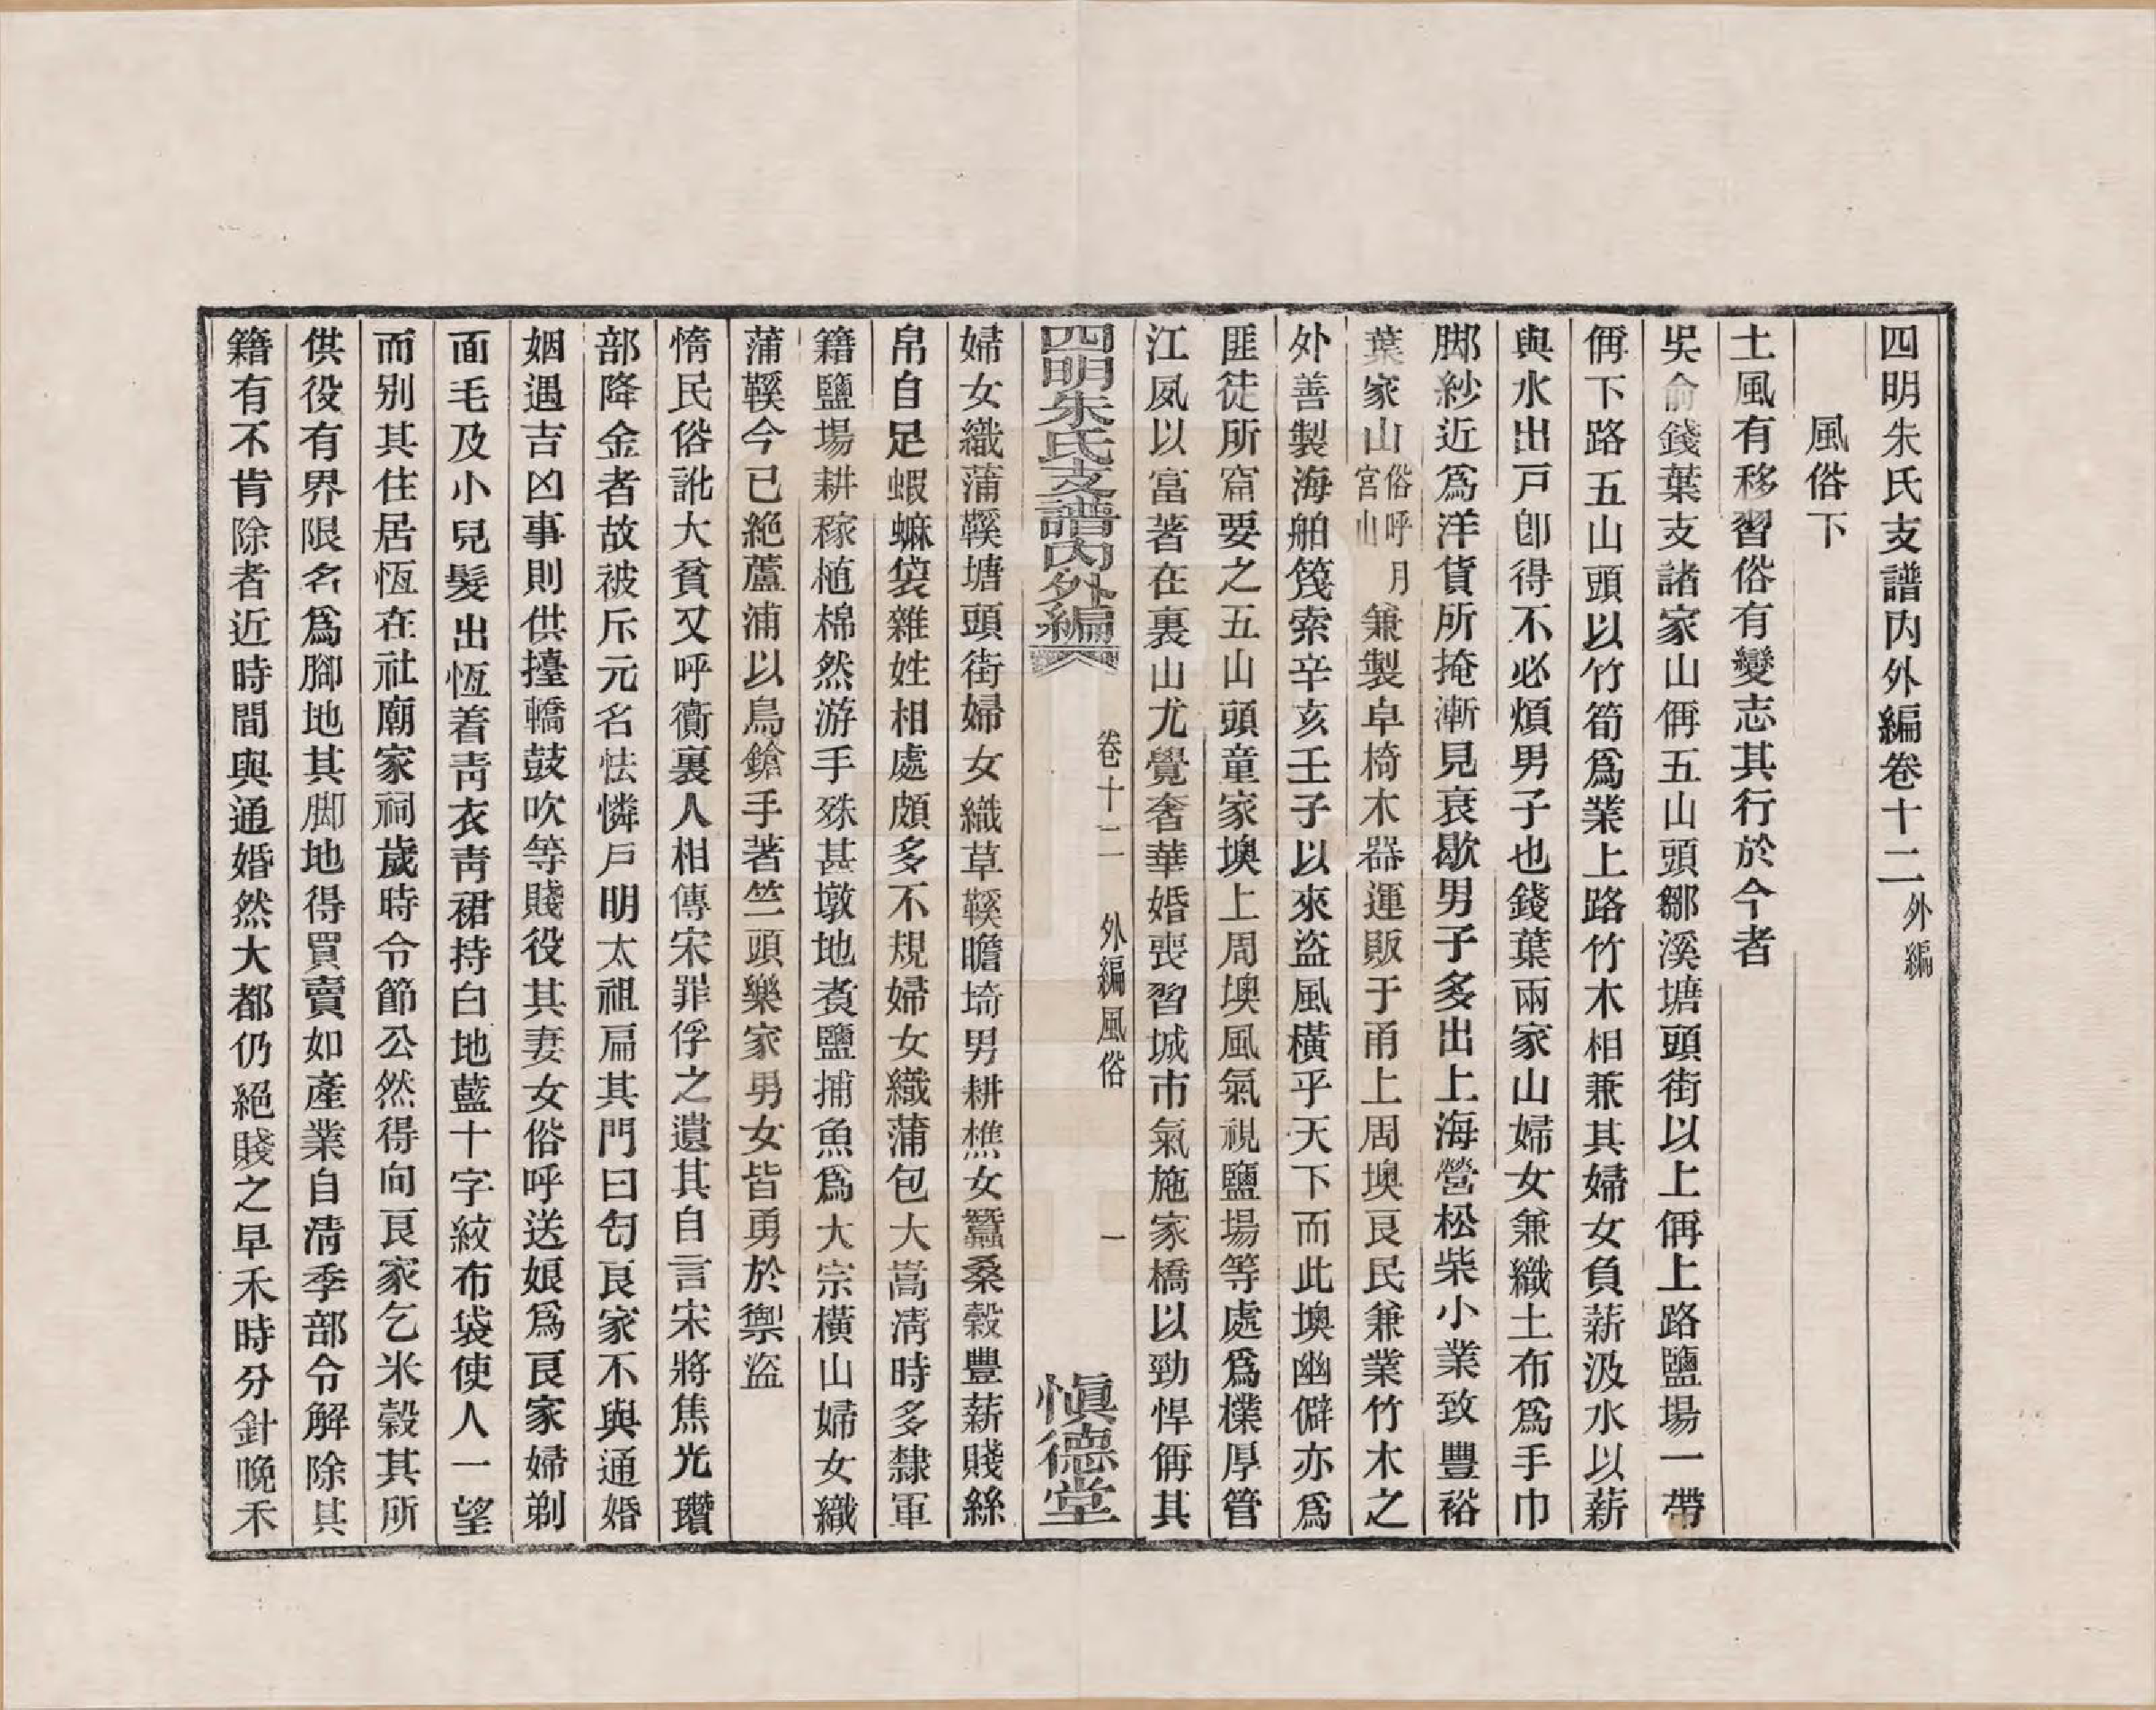 四明朱氏支譜內外編卷十二外編
風俗下
土風有移習俗有變志其行於今者
吳俞錢葉支諸家山偁五山頭鄒溪塘頭街以上偁上路鹽場一帶
偁下路五山頭以竹筍爲業上路竹木相兼其婦女負薪汲水以薪
與水出戸卽得不必煩男子也錢葉兩家山婦女兼織土布爲手巾
脚紗近爲洋貨所掩漸見衰歇男子多出上海營松柴小業致豐裕
葉家山俗呼月宮山兼製卓椅木器運販于甬上周墺良民兼業竹木之
外善製海舶筏索辛亥壬子以來盜風橫乎天下而此墺幽僻亦爲
匪徒所窟要之五山頭童家墺上周墺風氣視鹽場等處爲樸厚管
江風以富著在裏山尤覺奢華婚喪習城市氣施家橋以勁悍偁其
四明朱氏支譜內外編
卷十二
外編風俗
一
愼德堂
婦女織蒲鞵塘頭街婦女織草鞵瞻埼男耕樵女蠶桑穀豐薪賤絲
帛自足蝦蝲袋雜姓相處頗多不規婦女織蒲包大嵩淸時多隸軍
籍鹽場耕稼植棉然游手殊甚墩地煮鹽捕魚爲大宗橫山婦女織
蒲鞵今已絕蘆浦以鳥鎗手著竺頭樂家男女皆勇於禦盜
惰民俗訛大貧又呼衖裏人相傳宋罪俘之遺其自言宋將焦光瓚
部降金者故被斥元名怯憐戸明太祖扁其門曰匄良家不與通婚
姻遇吉凶事則供擡轎鼓吹等賤役其妻女俗呼送娘爲良家婦剃
面毛及小兒髮出恆着靑衣靑裙持白地藍十字紋布袋使人一望
而別其住居恆在社廟家祠歲時令節公然得向良家乞米穀其所
供役有界限名爲腳地其脚地得買賣如產業自淸季部令解除其
籍有不肯除者近時間與通婚然大都仍絕賤之早禾時分針晚禾